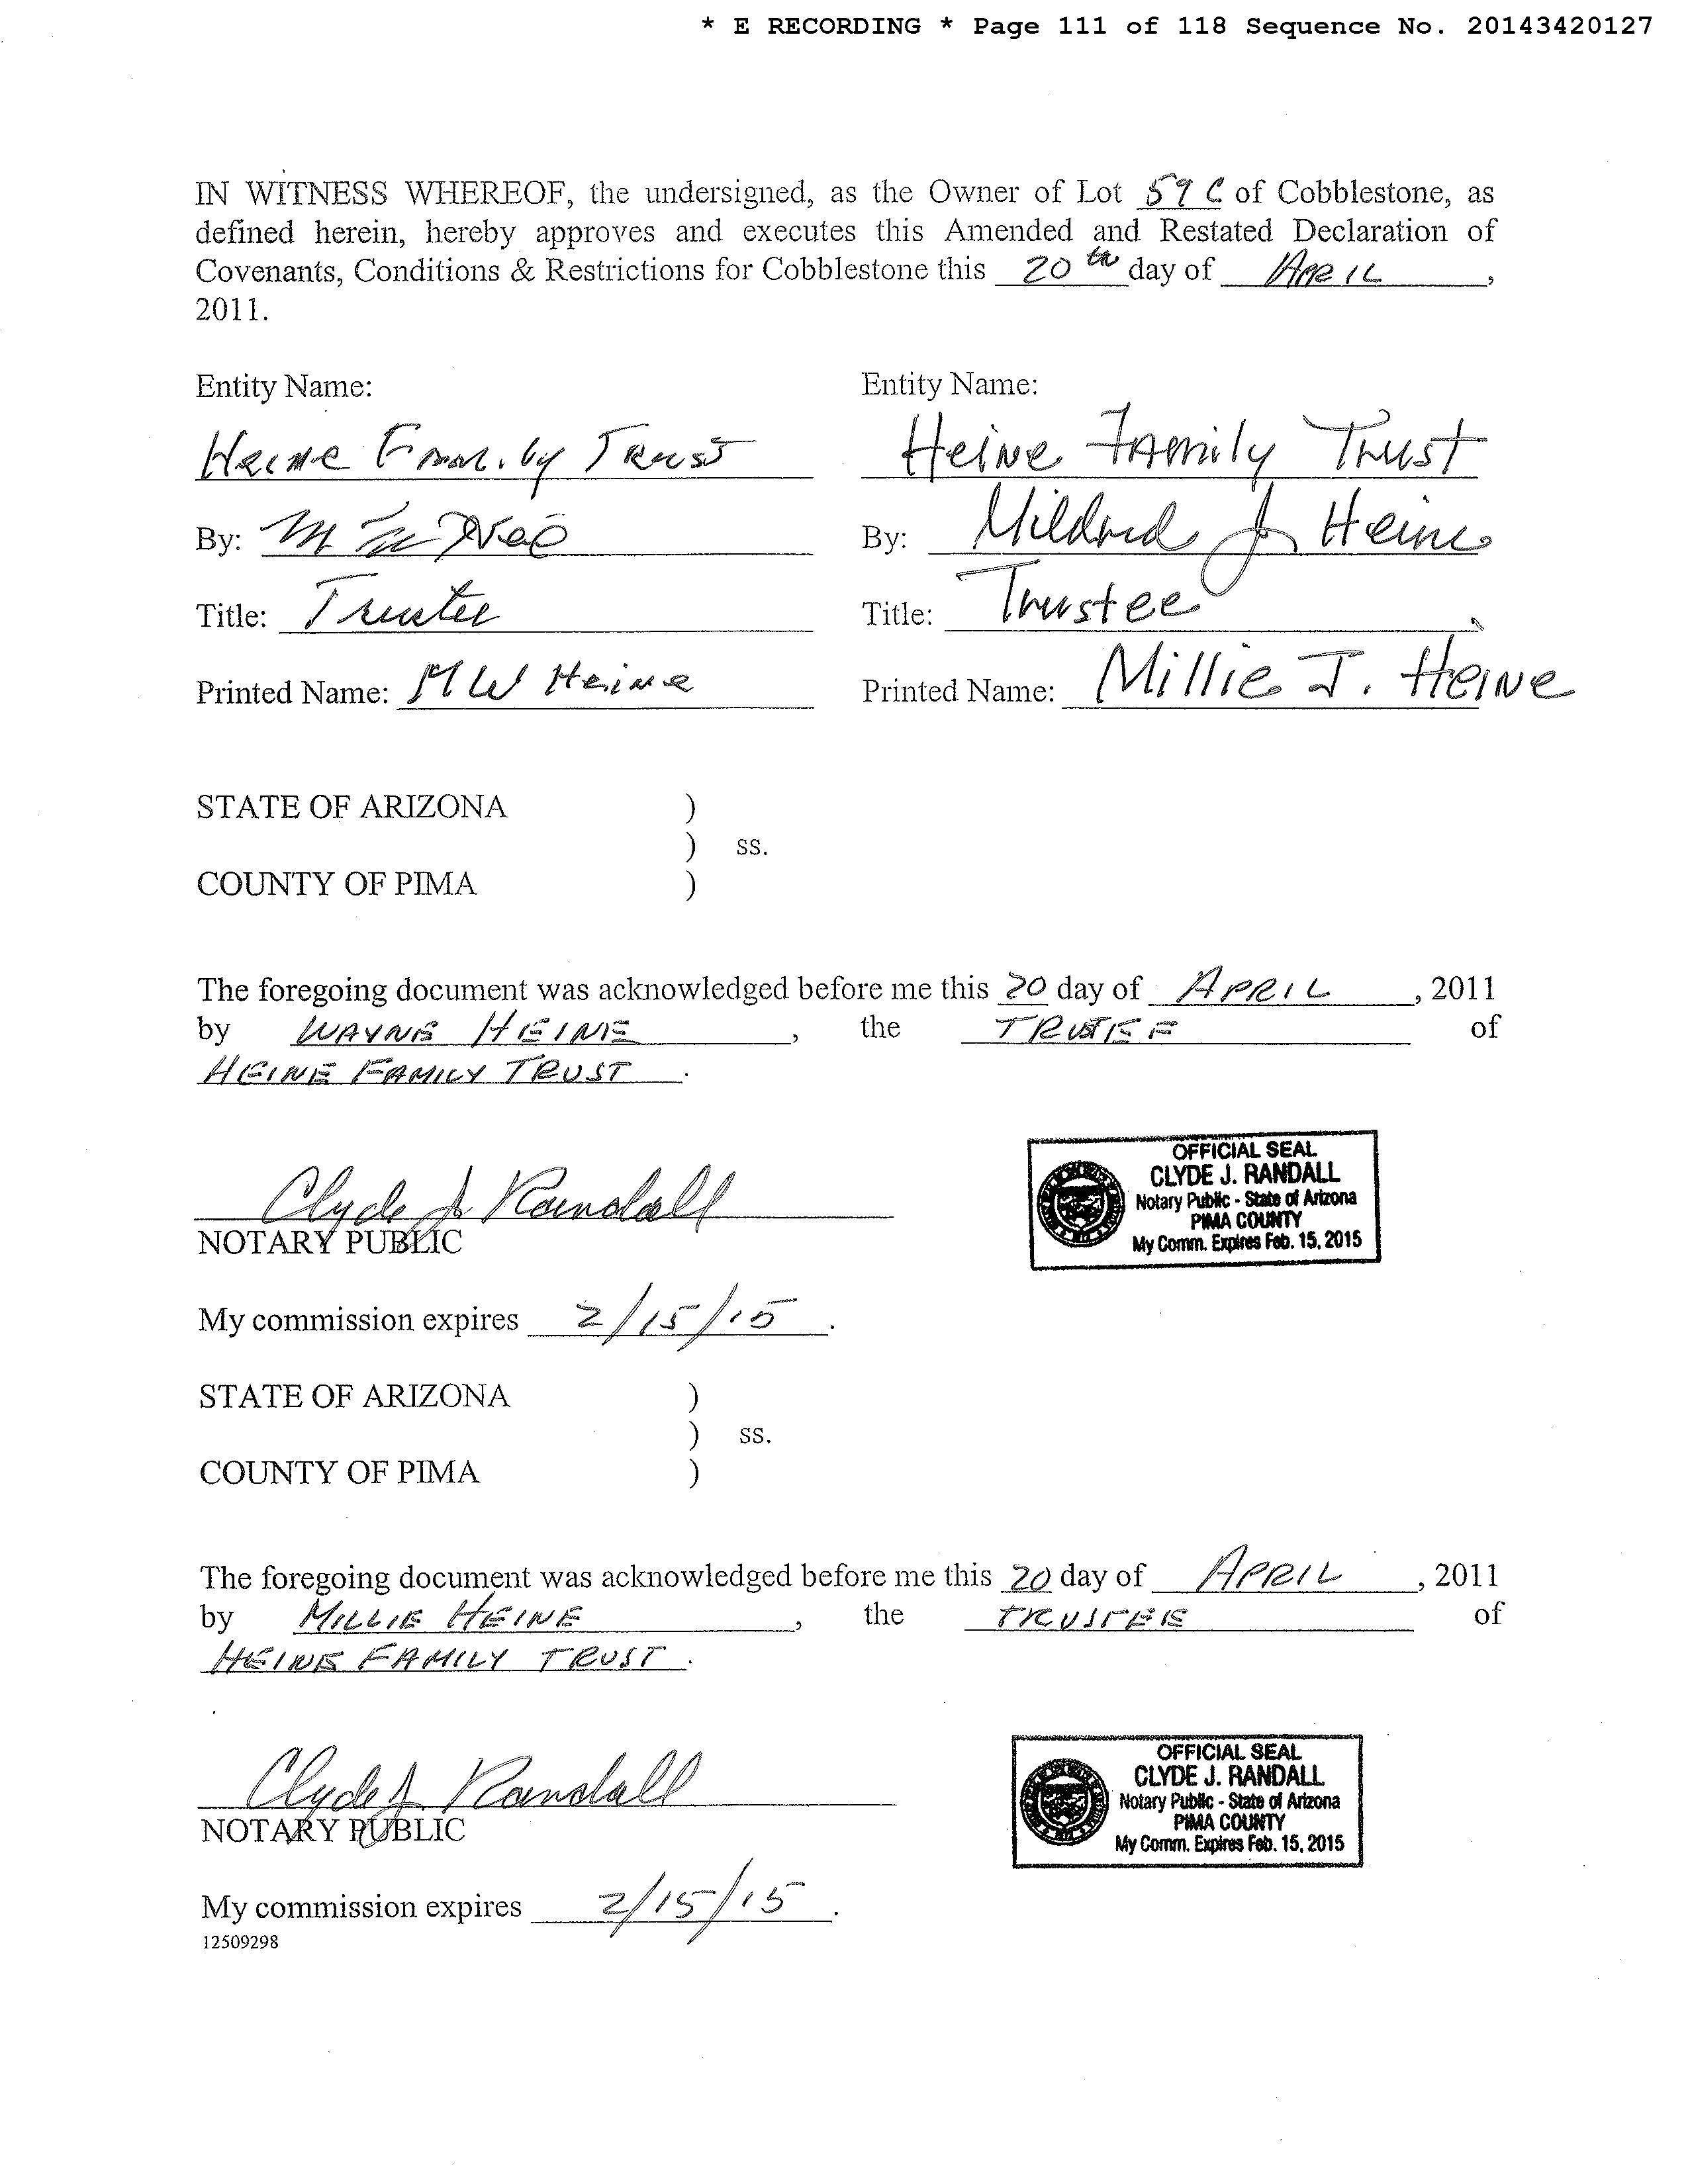 * E RECORDING * Page 111 of 118 Sequence No. 20143420127
IN WITNESS WHEREOF, the undersigned, as the Owner of Lot 59 C of Cobblestone, as
defined herein, hereby approves and executes this Amended and Restated Declaration of
Covenants, Conditions & Restrictions for Cobblestone this 20th day of APRIL,
2011.
Entity Name: Entity Name:
Heine Family Trust Heine Family Trust
By: By: Mildred J Heine
Title: Trustee Title: Trustee
Printed Name: MW Heine Printed Name: Millie J. Heine
STATE OF ARIZONA )
) ss.
COUNTY OF PIMA )
The foregoing document was acknowledged before me this 20 day of APRIL, 2011
by WAYNE HEINE, the TRUSTEE of
HEINE FAMILY TRUST.
Clyde J Randall
NOTARY PUBLIC
OFFICIAL SEAL
CLYDE J. RANDALL
Notary Public - State of Arizona
PIMA COUNTY
My Comm. Expires Feb. 15, 2015
My commission expires 2/15/15.
STATE OF ARIZONA )
) ss.
COUNTY OF PIMA )
The foregoing document was acknowledged before me this 20 day of APRIL, 2011
by MILLIE HEINE, the TRUSTEE of
HEINE FAMILY TRUST.
Clyde J Randall
NOTARY PUBLIC
OFFICIAL SEAL
CLYDE J. RANDALL
Notary Public - State of Arizona
PIMA COUNTY
My Comm. Expires Feb. 15, 2015
My commission expires 2/15/15.
12509298